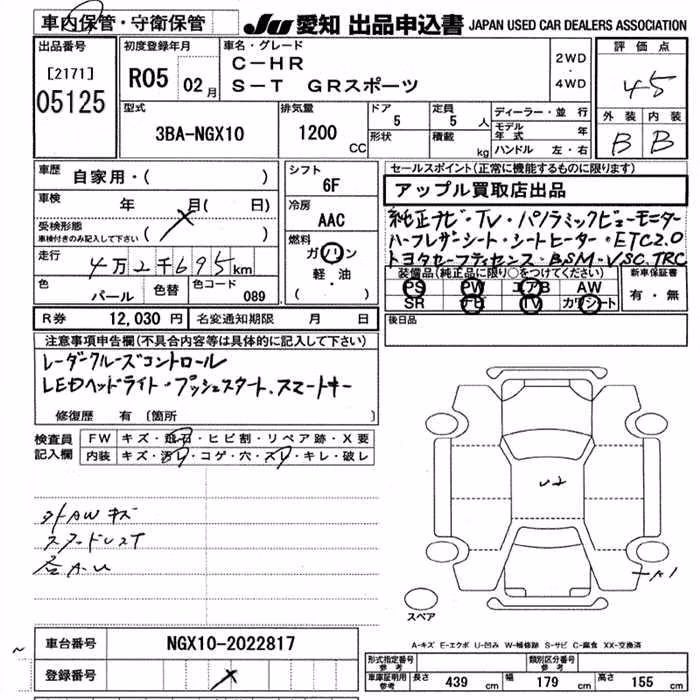 車内保管・守衛保管
JU 愛知 出品申込書 JAPAN USED CAR DEALERS ASSOCIATION
出品番号
[2171]
05125
初度登録年月
R05 02 月
車名・グレード
C-HR
S-T GRスポーツ
2WD
・
4WD
評価点
4.5
外装 内装
B B
型式
3BA-NGX10
排気量
1200 CC
ドア 5
形状
定員 5 人
積載 kg
ディーラー・並行
モデル年式 年
ハンドル 左・右
車歴 自家用・( )
車検 年 月( 日)
受検形態
車検付きのみ記入して下さい ( )
走行 4万2千695km
色 パール 色替 色コード 089
シフト
6F
冷房
AAC
燃料
ガソリン
軽・油
( )
セールスポイント(正常に機能するものに限ります)
アップル買取店出品
純正ナビ・TV・パノラミックビューモニター
ハーフレザーシート・シートヒーター・ETC2.0
トヨタセーフティセンス・BSM・VSC.TRC
装備品(純正品に限り○をつけてください)
PS PW エアB AW
SR ナビ TV カワシート
新車保証書
有・無
R券 12,030 円 名変通知期限 月 日
後日品
注意事項申告欄(不具合内容等は具体的に記入して下さい)
レーダークルーズコントロール
LEDヘッドライト・プッシュスタート.スマートキー
修復歴 有 〔箇所 〕
検査員記入欄
FW キズ・飛石・ヒビ割・リペア跡・X要
内装 キズ・汚レ・コゲ・穴・スレ・キレ・破レ
外AWキズ
A1
スペア
A-キズ E-エクボ U-凹み W-補修跡 S-サビ C-腐食 XX-交換済
車台番号 NGX10-2022817
登録番号
形式指定番号参考 類別区分番号参考
車庫証明用参考 長さ 439 cm 幅 179 cm 高さ 155 cm